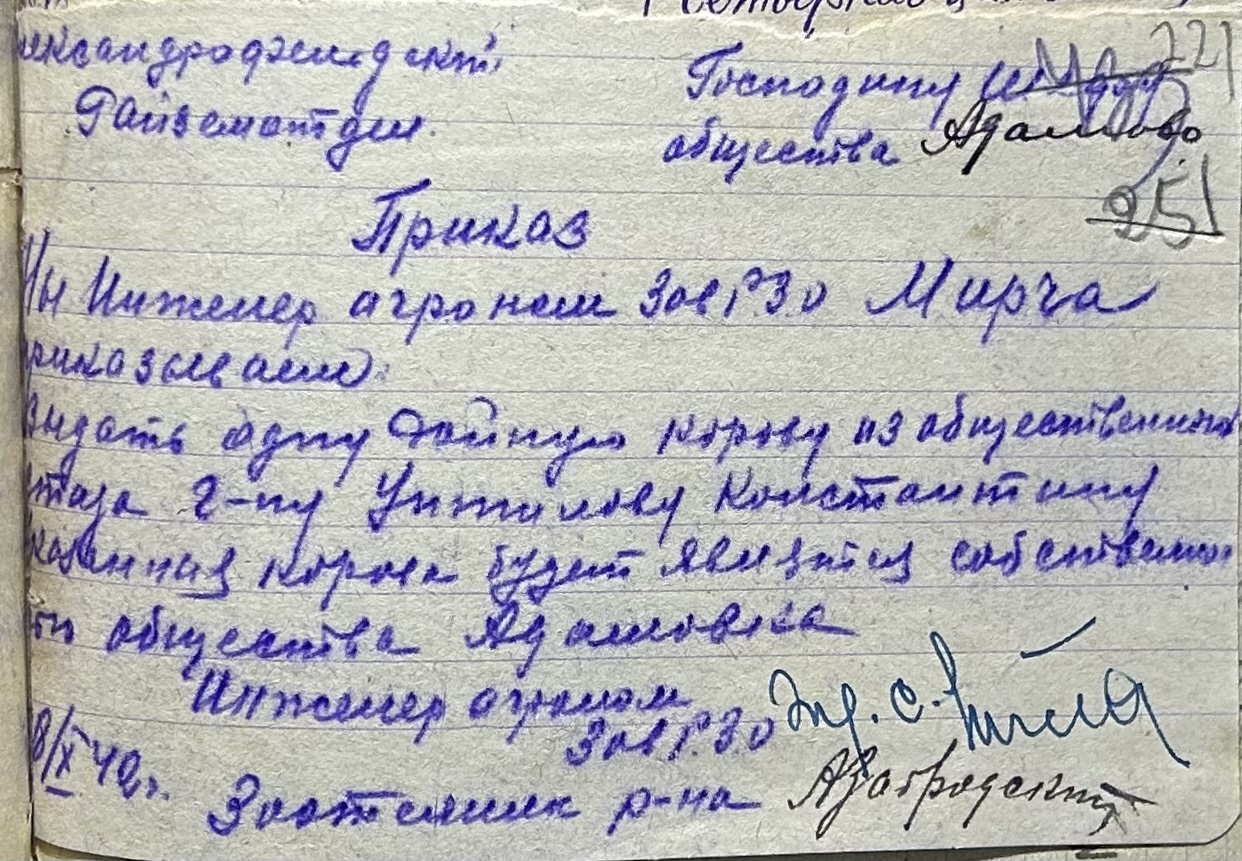 221
Господину
Райземотдел.
общества Адамово
251
Приказ
Мы Инженер агроном Зав РЗО Мирча
приказываем:
Выдать одну дойную корову из общественного
стада г-ну Унтилову Константину
указанная корова будет явиятся собственно-
сти общества Адамовка
Инженер агроном
Зав РЗО Инж. С.
8/X 42г.
Зоотехник р-на АЗабродский